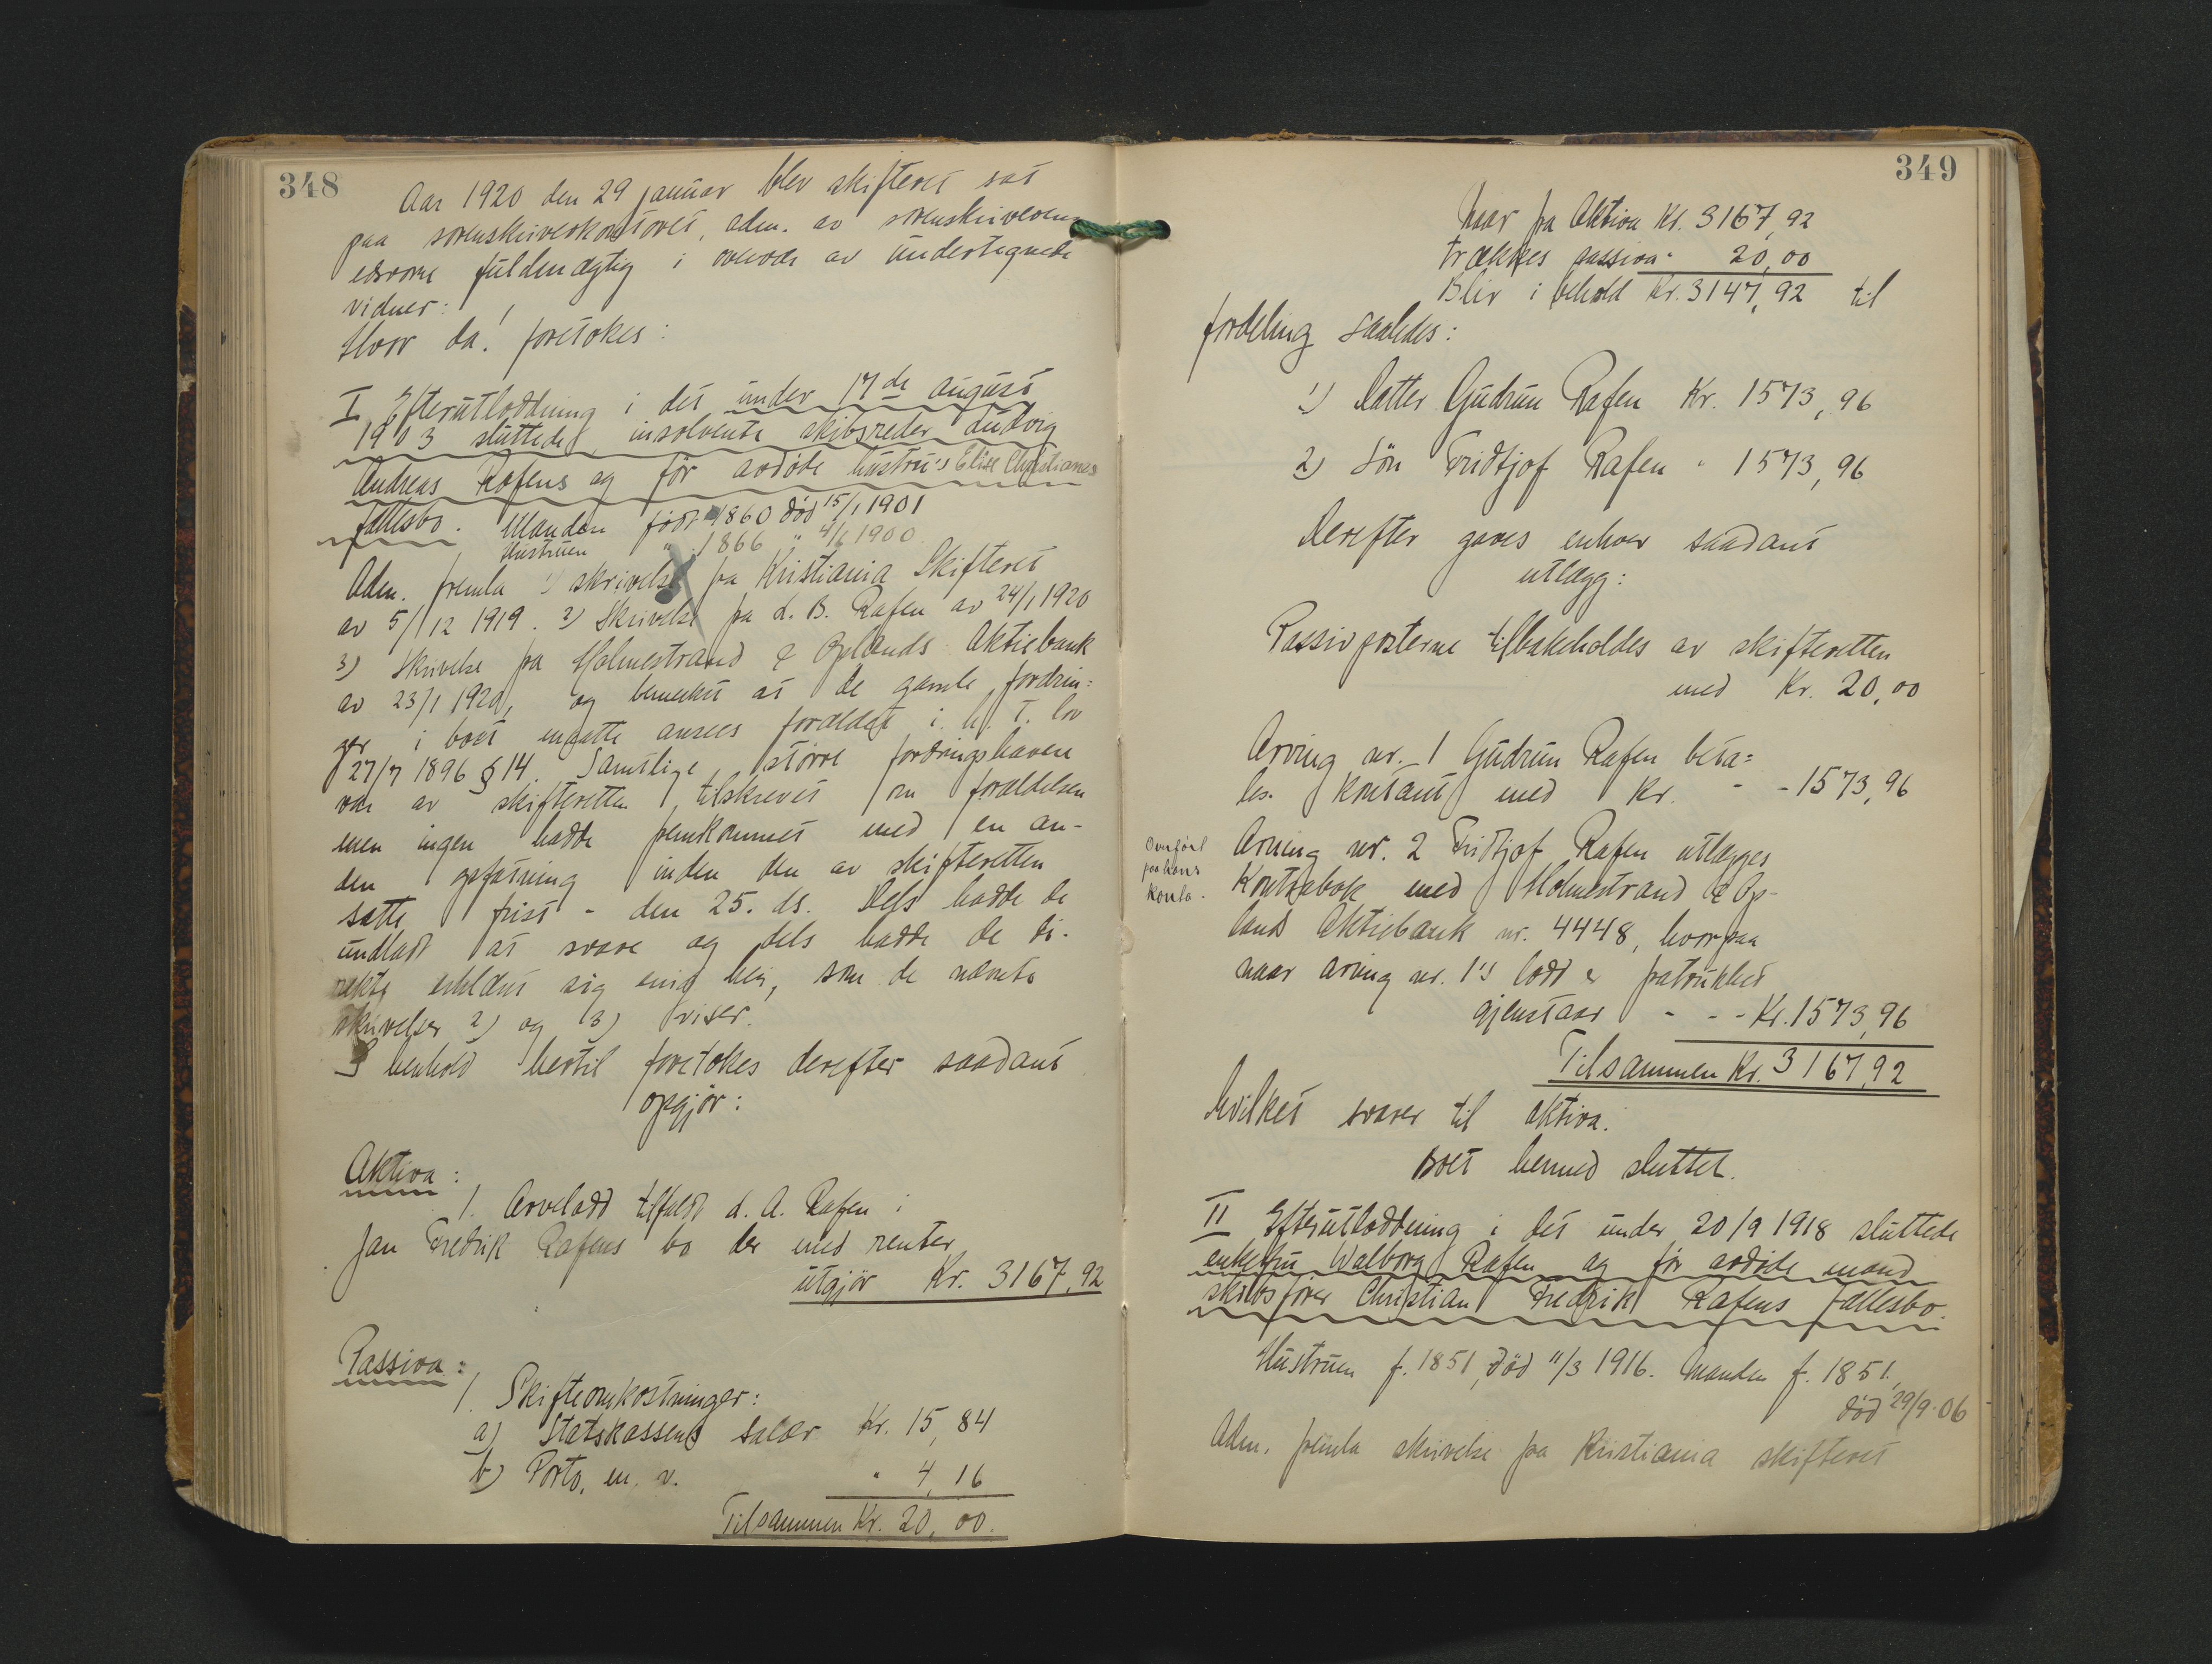 348
Aar 1920 den 29 januar blev skifteret sat
paa sorenskriverkontoret, adm. av sorenskriverens
edsvorne fuldmægtig i overvær av undertegnede
vidner:
Hvor da! foretokes:
I Efterutlodning i det under 17de august
1903 sluttede, insolvente skibsreder Ludvig
Andreas Rafens og før avdøde hustru's Elise Christianes
fællesbo. Manden født 1860 død 15/1 1901
Hustruen " 1866 " 4/6 1900.
Adm. fremla 1) skrivelse fra Kristiania Skifteret
av 5/12 1919. 2) Skrivelse fra L. B. Rafen av 24/1 1920
3) Skrivelse fra Holmestrand & Oplands Aktiebank
av 23/1 1920, og bemerket at de gamle fordrin=
ger i boet maatte ansees forældet i. h. t. lov
27/7 1896 § 14. Samtlige større fordringshavere
var av skifteretten tilskrevet om forældelsen
men ingen hadde fremkommet med en an-
den opfatning inden den av skifteretten
satte frist - den 25. ds. Dels hadde de
undlatt at svare og dels hadde de di-
rekte erklært sig enig heri, som de nævnte
skrivelser 2) og 3) viser.
I henhold hertil foretokes derefter saadant
opgjør:
Aktiva:
1. Arvelodd tilfaldt L. A. Rafen i
Jan Fredrik Rafens bo der med renter
utgjør Kr. 3167,92
Passiva:
1. Skifteomkostninger:
a) Statskassens salær Kr. 15,84
b) Porto, m. v. " 4,16
Tilsammen Kr. 20,00.
349
Naar fra Aktiva Kr. 3167,92
trækkes passiva " 20,00
Blir i behold Kr. 3147,92 til
fordeling saaledes:
1) Datter Gudrun Rafen Kr. 1573,96
2) Søn Fridtjof Rafen " 1573,96
Derefter gaves enhver saadant
utlægg:
Passivposterne tilbakeholdes av skifteretten
med Kr. 20,00
Arving nr. 1 Gudrun Rafen beta=
les kontant med Kr. - - 1573,96
Overført
paa hans
konto.
Arving nr. 2 Fridtjof Rafen utlægges
Kontrabok med Holmestrand & Op-
land Aktiebank nr. 4448, hvorpaa
naar arving nr. 1's lodd er fratrukket
gjenstaar - - - Kr. 1573,96
Tilsammen Kr. 3167,92
hvilket svarer til aktiva.
Boet hermed sluttet.
II Efterutlodning i det under 20/9 1918 sluttede
enkefru Walborg Rafen og før avdøde mand
skibsfører Christian Fredrik Rafens fællesbo.
Hustruen f. 1851, død 11/3 1916. Manden f. 1851,
død 29/9-06
Adm. fremla skrivelse fra Kristiania skifteret